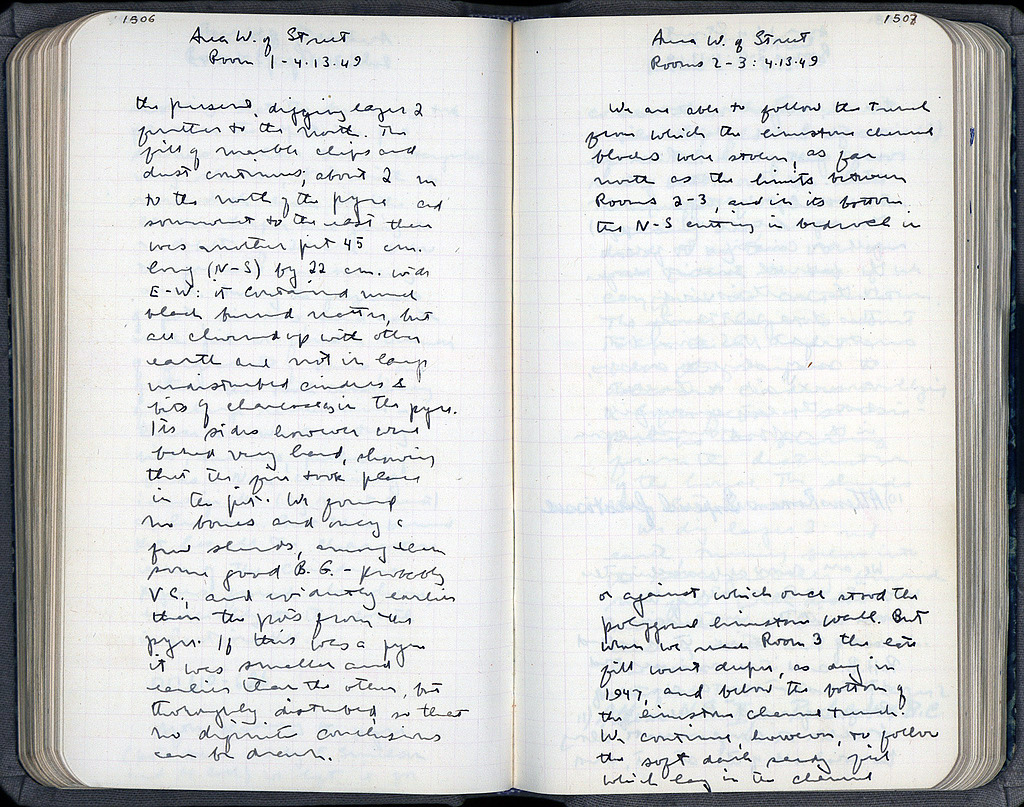 1506
Area W. of Street
Room 1 - 4.13.49
the present, digging layer 2
further to the north. The
fill of marble chips and
dust continues; about 2 m
to the north of the pyre and
somewhat to the east there
was another pit 45 cm.
long (N-S) by 22 cm. wide
E-W: it contained much
black burned matter, but
all churned up with other
earth and not in large
undisturbed cinders &
bits of charcoal as in the pyre.
Its sides however were
baked very hard, showing
that the fire took place
in the pit. We found
no bones and only a
few sherds, among them
some good B.G. - probably
V C., and evidently earlier
than the pots from the
pyre. If this was a pyre
it was smaller and
earlier than the other, but
thoroughly disturbed so that
no definite conclusions
can be drawn.
1507
Area W. of Street
Rooms 2-3: 4.13.49
We are able to follow the trench
from which the limestone channel
blocks were stolen, as far
north as the limits between
Rooms 2-3, and in its bottom
the N-S cutting in bedrock in
or against which once stood the
polygonal limestone wall. But
when we reach Room 3 the late
fill went deeper, as dug in
1947, and below the bottom of
the limestone channel trench.
We continue, however, to follow
the soft dark sandy fill
which lay in the channel